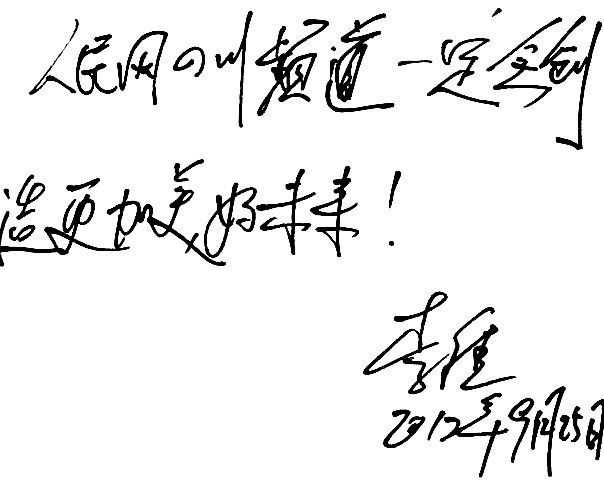 人民网四川频道一定会创
造更加美好未来！
李佳
2012年9月25日